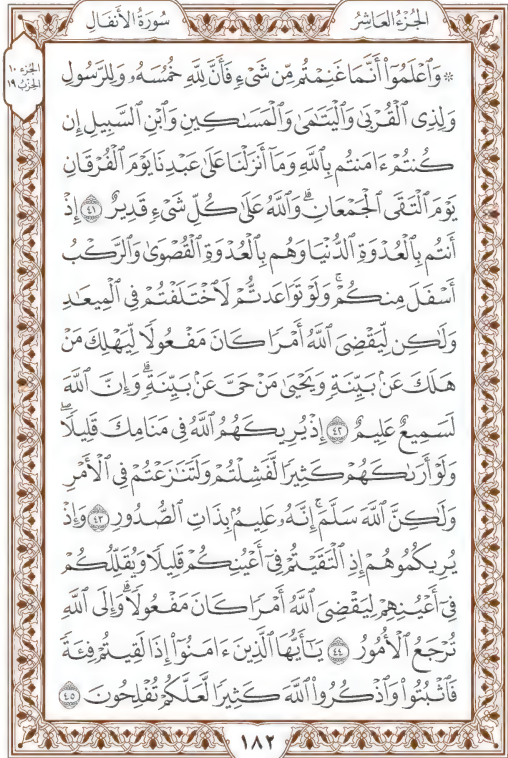 الجزء العاشر
سورة الأنفال
الجزء ١٠
الحزب ١٩
۞ وَٱعْلَمُوٓاْ أَنَّمَا غَنِمْتُم مِّن شَىْءٍ فَأَنَّ لِلَّهِ خُمُسَهُۥ وَلِلرَّسُولِ
وَلِذِى ٱلْقُرْبَىٰ وَٱلْيَتَٰمَىٰ وَٱلْمَسَٰكِينِ وَٱبْنِ ٱلسَّبِيلِ إِن
كُنتُمْ ءَامَنتُم بِٱللَّهِ وَمَآ أَنزَلْنَا عَلَىٰ عَبْدِنَا يَوْمَ ٱلْفُرْقَانِ
يَوْمَ ٱلْتَقَى ٱلْجَمْعَانِۗ وَٱللَّهُ عَلَىٰ كُلِّ شَىْءٍ قَدِيرٌ ٤١ إِذْ
أَنتُم بِٱلْعُدْوَةِ ٱلدُّنْيَا وَهُم بِٱلْعُدْوَةِ ٱلْقُصْوَىٰ وَٱلرَّكْبُ
أَسْفَلَ مِنكُمْۚ وَلَوْ تَوَاعَدتُّمْ لَٱخْتَلَفْتُمْ فِى ٱلْمِيعَٰدِ
وَلَٰكِن لِّيَقْضِىَ ٱللَّهُ أَمْرًا كَانَ مَفْعُولًا لِّيَهْلِكَ مَنْ
هَلَكَ عَنۢ بَيِّنَةٍ وَيَحْيَىٰ مَنْ حَىَّ عَنۢ بَيِّنَةٍۗ وَإِنَّ ٱللَّهَ
لَسَمِيعٌ عَلِيمٌ ٤٢ إِذْ يُرِيكَهُمُ ٱللَّهُ فِى مَنَامِكَ قَلِيلًاۖ
وَلَوْ أَرَىٰكَهُمْ كَثِيرًا لَّفَشِلْتُمْ وَلَتَنَٰزَعْتُمْ فِى ٱلْأَمْرِ
وَلَٰكِنَّ ٱللَّهَ سَلَّمَۗ إِنَّهُۥ عَلِيمٌۢ بِذَاتِ ٱلصُّدُورِ ٤٣ وَإِذْ
يُرِيكُمُوهُمْ إِذِ ٱلْتَقَيْتُمْ فِىٓ أَعْيُنِكُمْ قَلِيلًا وَيُقَلِّلُكُمْ
فِىٓ أَعْيُنِهِمْ لِيَقْضِىَ ٱللَّهُ أَمْرًا كَانَ مَفْعُولًاۗ وَإِلَى ٱللَّهِ
تُرْجَعُ ٱلْأُمُورُ ٤٤ يَٰٓأَيُّهَا ٱلَّذِينَ ءَامَنُوٓاْ إِذَا لَقِيتُمْ فِئَةً
فَٱثْبُتُواْ وَٱذْكُرُواْ ٱللَّهَ كَثِيرًا لَّعَلَّكُمْ تُفْلِحُونَ ٤٥
١٨٢